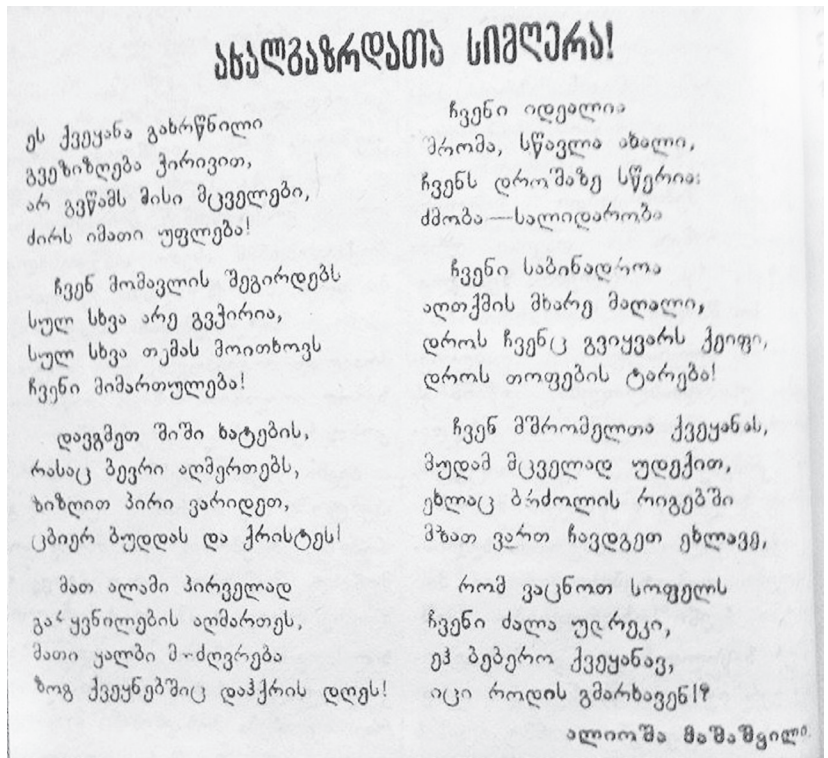 ახალგაზრდათა სიმღერა!
ეს ქვეყანა გახრწნილი
გვეზიზღება ჭირივით,
არ გვწამს მისი მცველები,
ძირს იმათი უფლება!
ჩვენ მომავლის შეგირდებს
სულ სხვა არე გვჭირია,
სულ სხვა თემას მოითხოვს
ჩვენი მიმართულება!
დავგმეთ შიში ხატების,
რასაც ბევრი აღმერთებს,
ზიზღით პირი ვარიდეთ,
ცბიერ ბუდდას და ქრისტეს!
მათ ალამი პირველად
გარყვნილების აღმართეს,
მათი ყალბი მოძღვრება
ზოგ ქვეყნებშიც დაჰქრის დღეს!
ჩვენი იდეალია
შრომა, სწავლა ახალი,
ჩვენს დროშაზე სწერია:
ძმობა—სალიდარობა
ჩვენი საბინადროა
აღთქმის მხარე მაღალი,
დროს ჩვენც გვიყვარს ქეიფი,
დროს თოფების ტარება!
ჩვენ მშრომელთა ქვეყანას,
მუდამ მცველად უდექით,
ეხლაც ბრძოლის რიგებში
მზათ ვართ ჩავდგეთ ეხლავე,
რომ ვაცნოთ სოფელს
ჩვენი ძალა უდრეკი,
ეჰ ბებერო ქვეყანავ,
იცი როდის გმარხავენ!?
ალიოშა მაშაშვილი